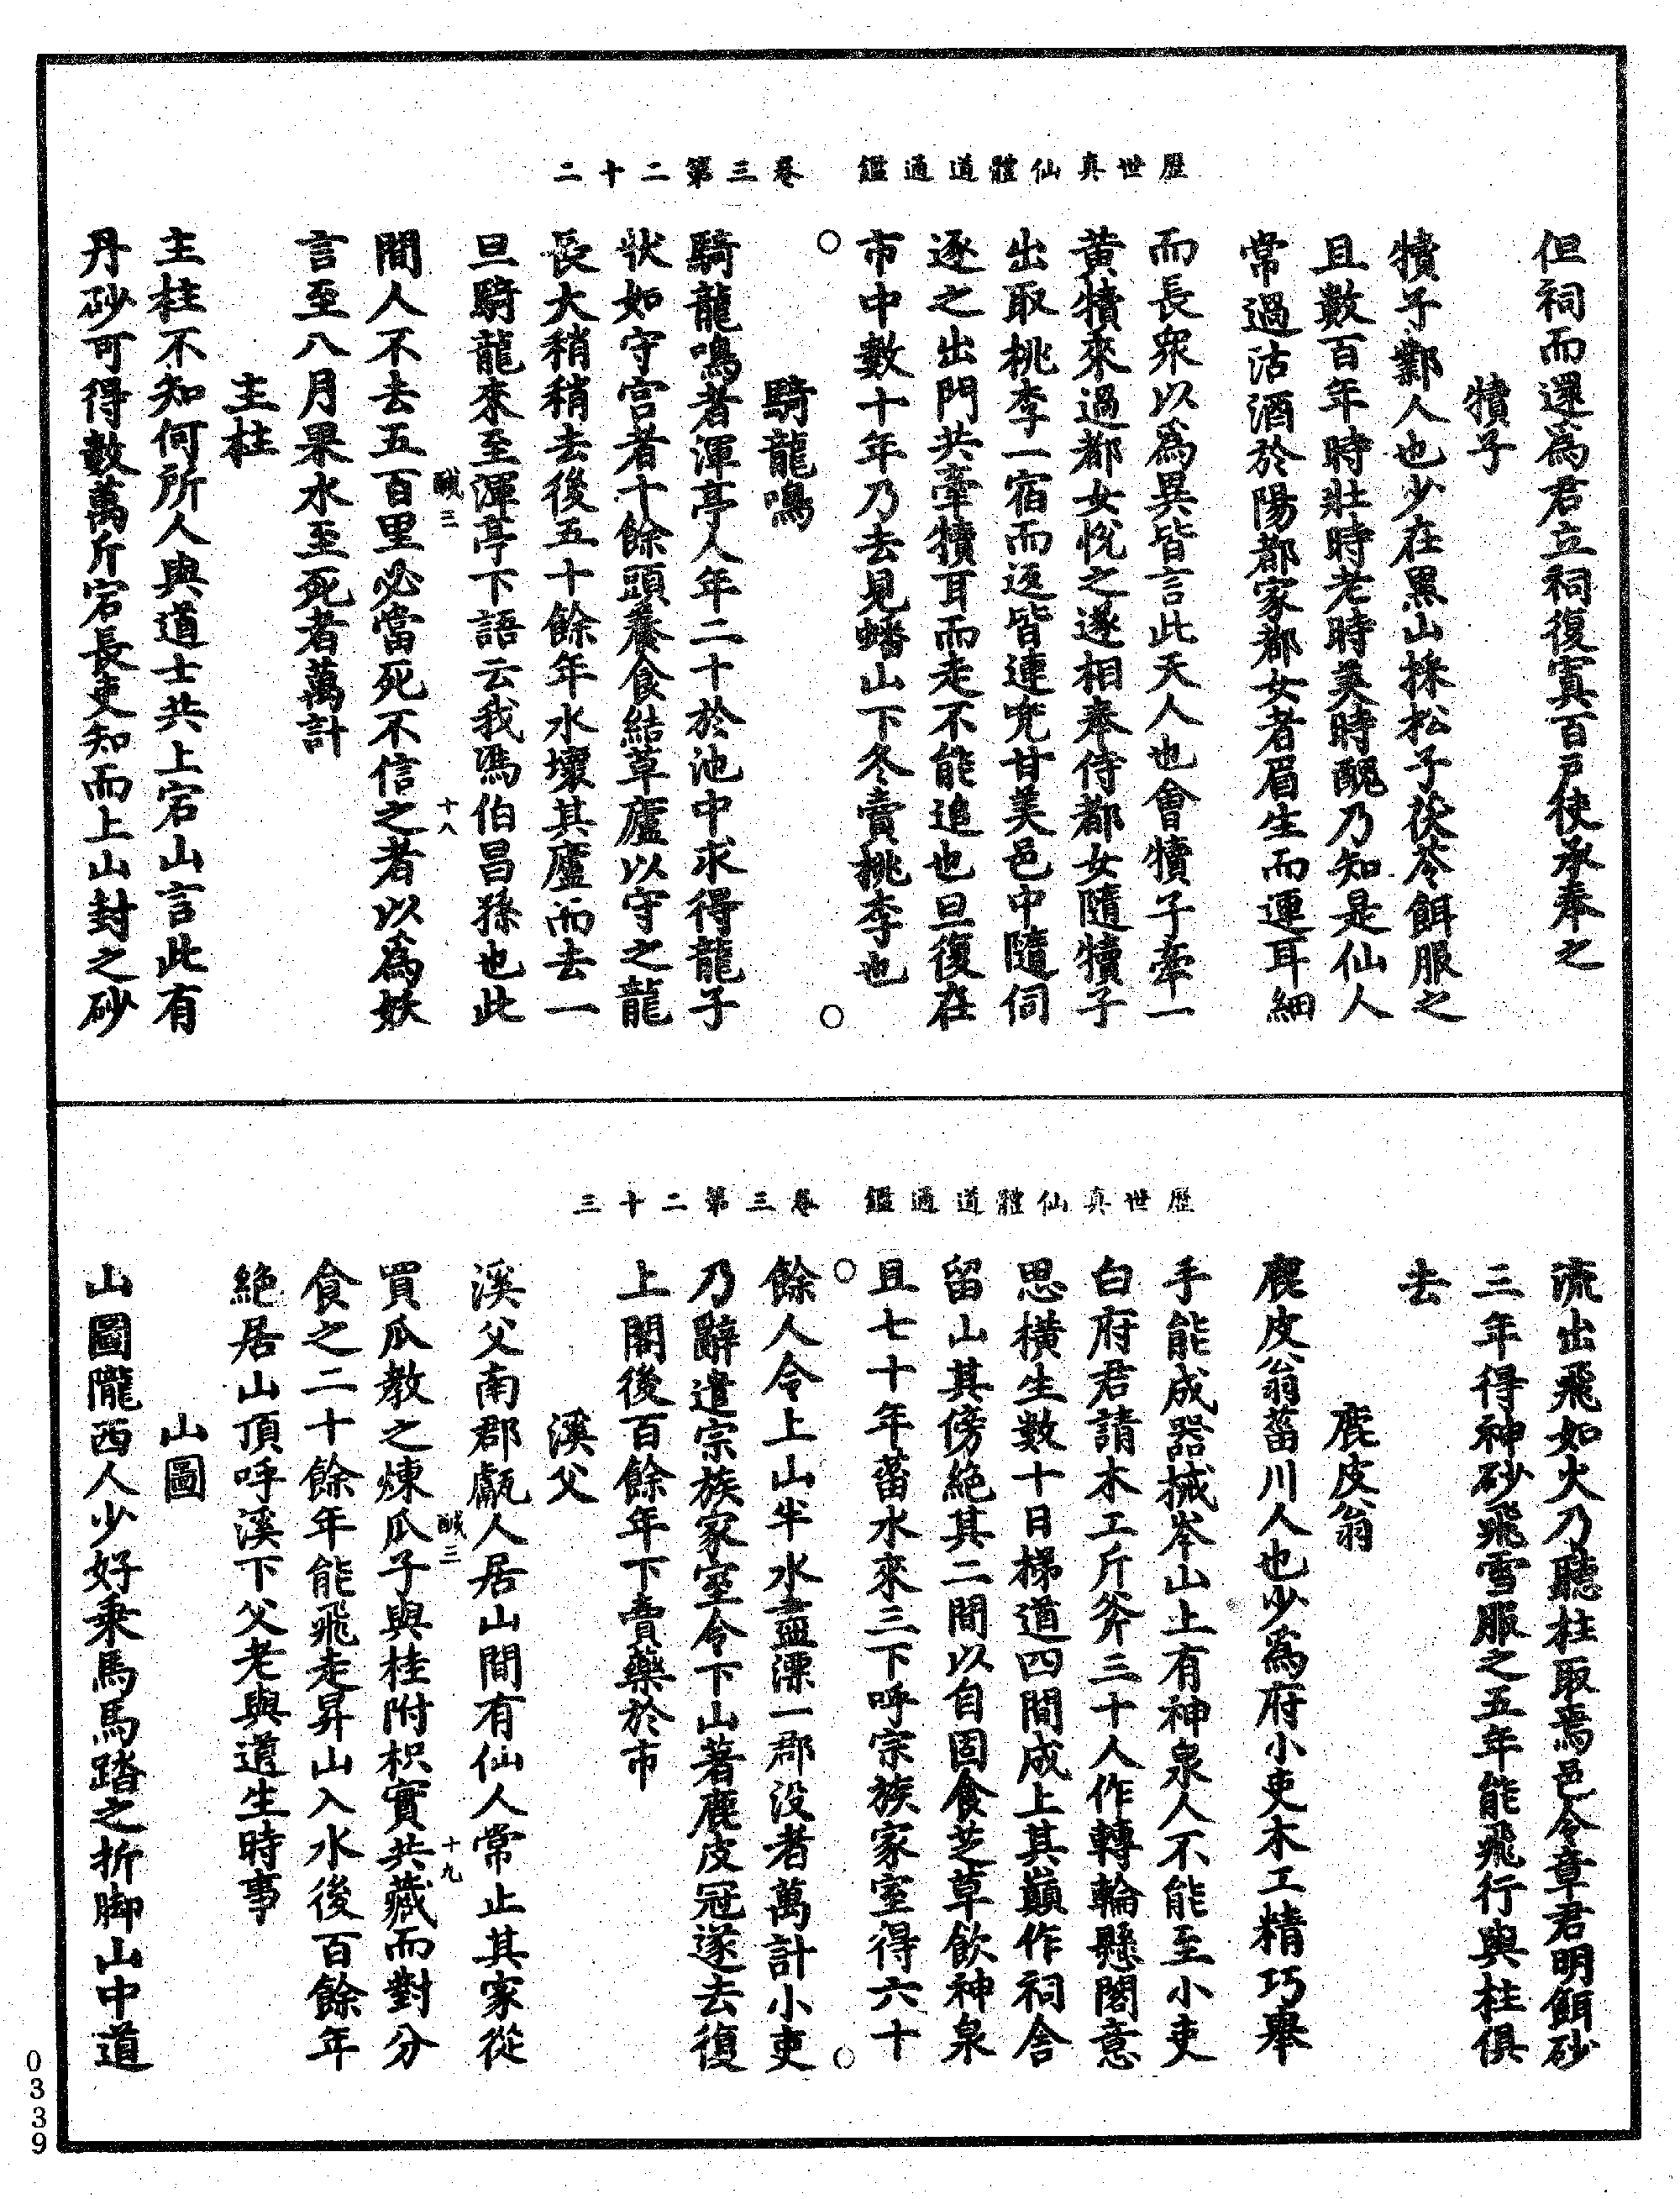 歷世真仙體道通鑑　卷三第二十二
但祠而還爲君立祠復寘百戶使承奉之
犢子
犢子鄴人也少在黑山採松子茯苓餌服之
且數百年時壯時老時美時醜乃知是仙人
常過沽酒於陽都家都女者眉生而連耳細
而長衆以爲異皆言此天人也會犢子牽一
黄犢來過都女悅之遂相奉侍都女隨犢子
出取桃李一宿而返皆連兜甘美邑中隨伺
逐之出門共牽犢耳而走不能追也旦復在
市中數十年乃去見蟠山下冬賣桃李也
騎龍鳴
騎龍鳴者渾亭人年二十於池中求得龍子
狀如守宮者十餘頭養食結草廬以守之龍
長大稍稍去後五十餘年水壞其廬而去一
旦騎龍來至渾亭下語云我馮伯昌孫也此
鹹三　十八
間人不去五百里必當死不信之者以爲妖
言至八月果水至死者萬計
主柱
主柱不知何所人與道士共上宕山言此有
丹砂可得數萬斤宕長吏知而上山封之砂
歷世真仙體道通鑑　卷三第二十三
流出飛如火乃聽柱取焉邑令章君明餌砂
三年得神砂飛雪服之五年能飛行與柱俱
去
鹿皮翁
鹿皮翁菑川人也少爲府小吏木工精巧舉
手能成器械岑山上有神泉人不能至小吏
白府君請木工斤斧三十人作轉輪懸閣意
思橫生數十日梯道四間成上其巔作祠舍
留山其傍絕其二間以自固食芝草飲神泉
且七十年菑水來三下呼宗族家室得六十
餘人令上山半水盡漂一郡没者萬計小吏
乃辭遣宗族家室令下山著鹿皮冠遂去復
上閣後百餘年下賣藥於市
溪父
溪父南郡鄘人居山間有仙人常止其家從
鹹三　十九
買瓜教之煉瓜子與桂附枳實共藏而對分
食之二十餘年能飛走昇山入水後百餘年
絕居山頂呼溪下父老與道生時事
山圖
山圖隴西人少好乘馬馬踏之折脚山中道
0339